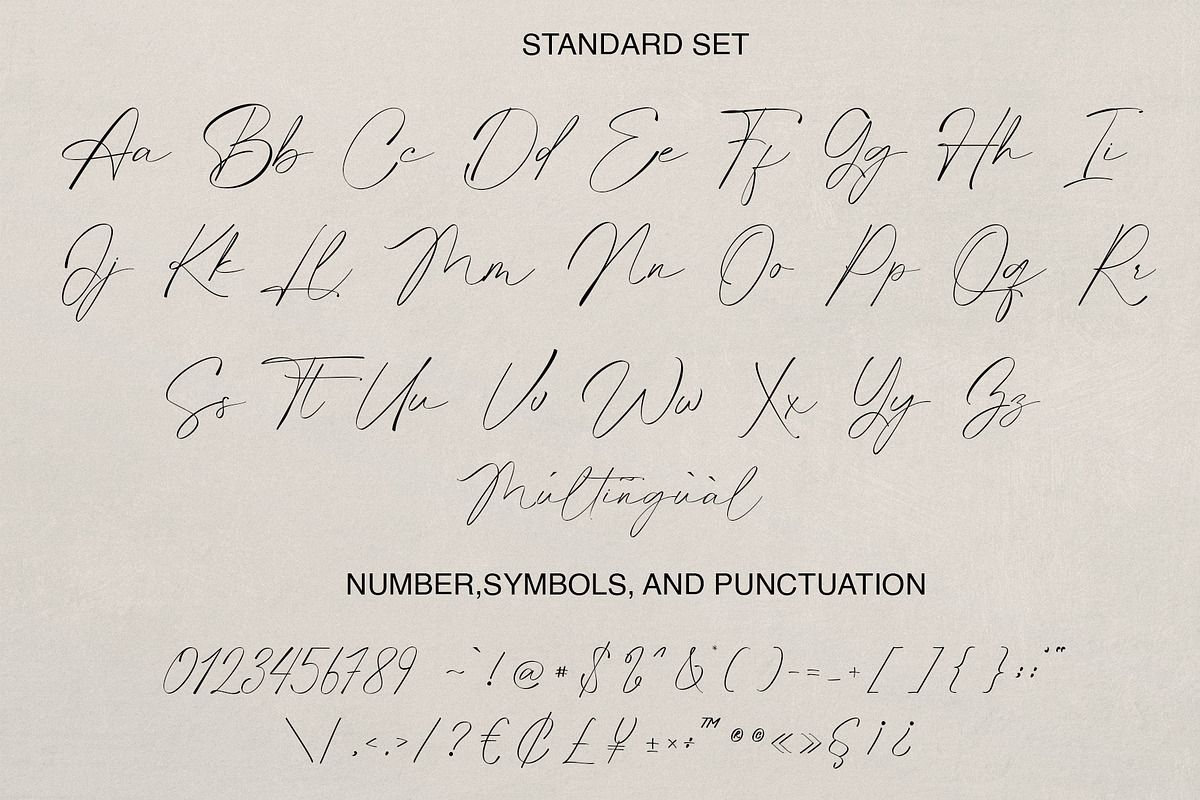 STANDARD SET
Aa Bb Cc Dd Ee Ff Gg Hh Ii
Jj Kk Ll Mm Nn Oo Pp Qq Rr
Ss Tt Uu Vv Ww Xx Yy Zz
Múltïngùàl
NUMBER,SYMBOLS, AND PUNCTUATION
0123456789 ~`!@#$%^&*()-=_+[]{}:;'"
\|,<.>/?€₵£¥±×÷™®©«»§¡¿